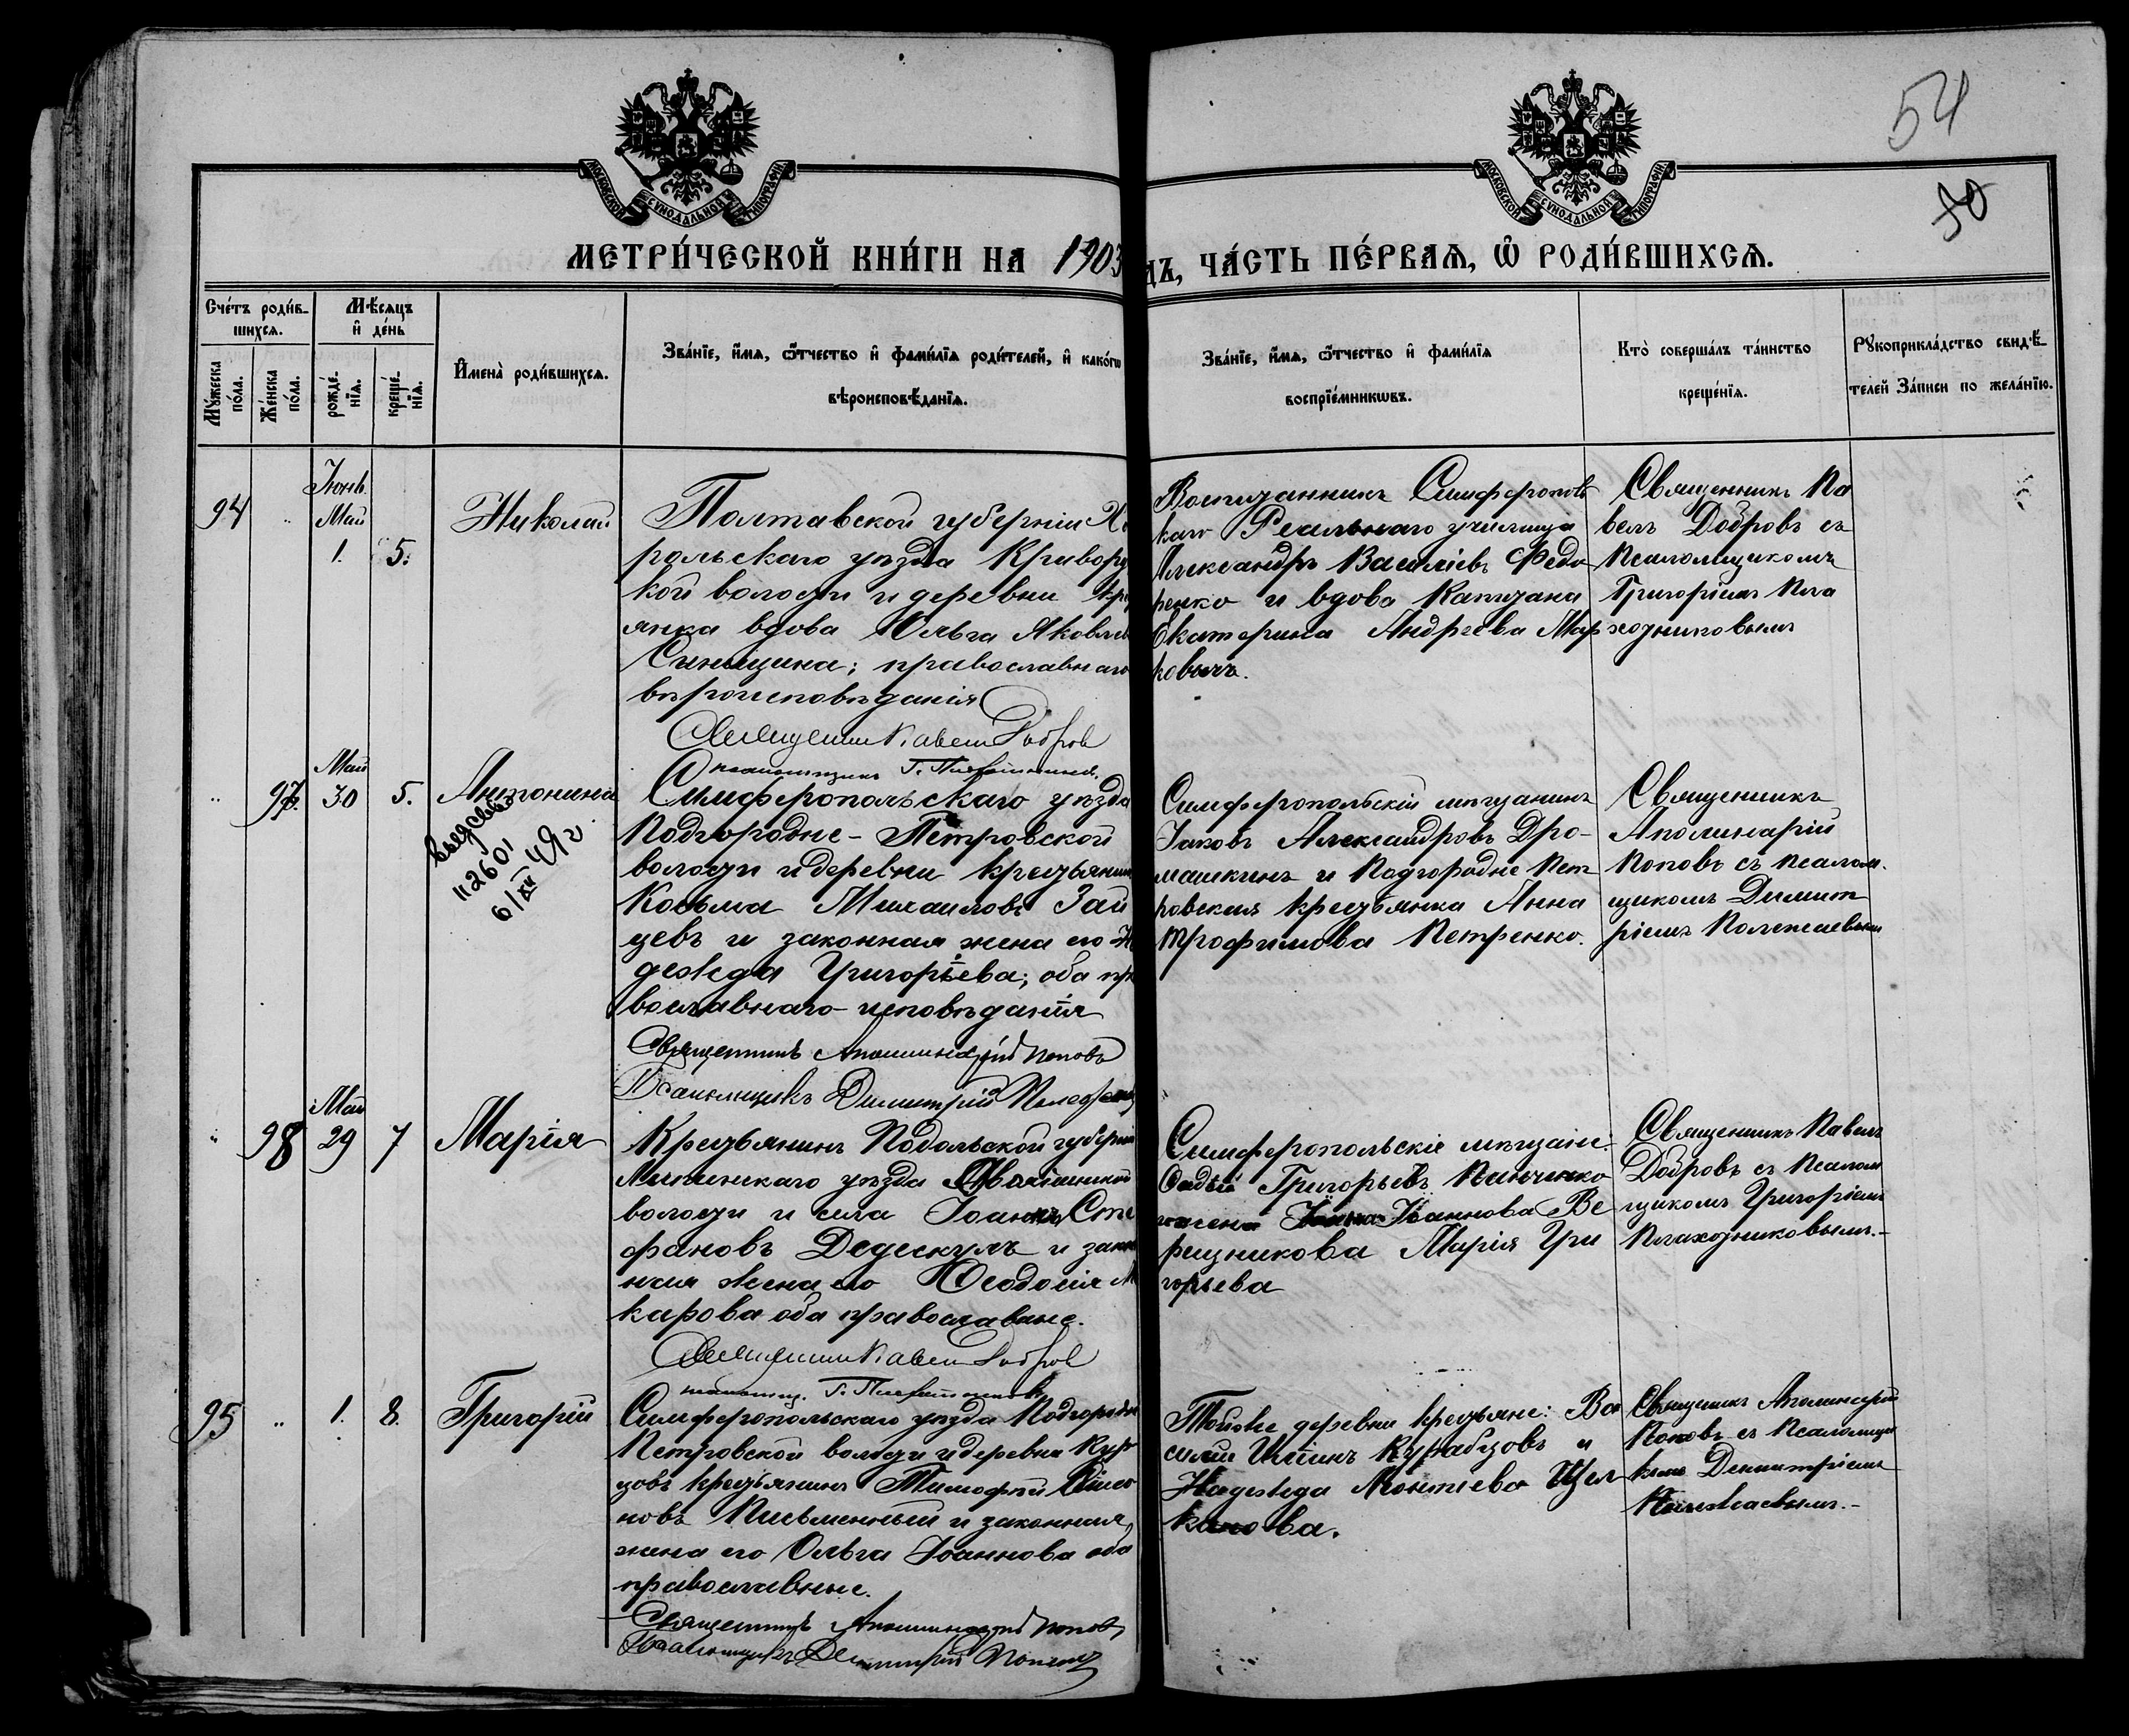 54
50
МОСКОВСКОЙ СѴНОДАЛЬНОЙ ТИПОГРАФІИ
МОСКОВСКОЙ СѴНОДАЛЬНОЙ ТИПОГРАФІИ
МЕТРИ́ЧЕСКОЙ КНИ́ГИ НА 1903
ДЪ, ЧА́СТЬ ПЕ́РВАѦ, Ѡ РОДИ́ВШИХСѦ.
Сче́тъ роди́в-
шихсѧ.
Мѣ́сѧцъ
и҆ де́нь
Мꙋ́жеска
по́ла.
Же́нска
по́ла.
рожде́-
нїѧ.
креще́-
нїѧ.
И҆мена̀ роди́вшихсѧ.
Зва́нїе, и҆́мѧ, ѻ҆́тчество и҆ фами́лїѧ роди́телей, и҆ како́гѡ
вѣроисповѣ́данїѧ.
Зва́нїе, и҆́мѧ, ѻ҆́тчество и҆ фами́лїѧ
воспрїе́мникѡвъ.
Кто̀ соверша́лъ та́инство
креще́нїѧ.
Рꙋкоприкла́дство свидѣ́-
телей за́писи по жела́нїю.
94
"
Май
1.
5.
Николай
Полтавской губерніи Хо
рольскаго уѣзда Кривору
кой волости и деревни кре
янка вдова Ольга Яковлев
Синицина; православнаго
вѣроисповѣданія
Священникъ Павелъ Добров
псаломщикъ Г.
Воспитанникъ Симферополь
каго Реальнаго училища
Александръ Василіевъ Федо
ренко и вдова Капитана
Екатерина Андреева Мар
ковичъ.
Священникъ Па
велъ Добровъ съ
псаломщикомъ
Григоріемъ Пла
хотниковымъ
"
97.
Май
30
5.
Антонина
112601
6/XII 49 г.
Симферопольскаго уѣзда
Подгородне-Петровской
волости и деревни крестьянин
Косьма Михаиловъ Зай
цевъ и законная жена его Н
дежда Григорьева; оба пр
вославнаго исповѣданія
Священникъ Аполлинарій Поповъ
Псаломщикъ Димитрій
Симферопольскій мѣщанинъ
Іаковъ Александровъ Дро-
машкинъ и Подгородне Пет
ровская крестьянка Анна
Трофимова Петренко.
Священникъ
Аполинарій
Поповъ съ псалом-
щикомъ Димит
ріемъ Полежаевымъ
"
98
Май
29
7
Марія
Крестьянинъ Подольской губерніи
уѣзда
волости и села Іоаннъ Сте
фановъ Дедескулъ и закон
ная жена его Ѳеодосія М
карова оба православные.
Священникъ Павелъ Добров
псаломщ. Г.
Симферопольскіе мѣщане:
Григорьевъ Панченко
Іоаннова Ве
рещникова Марія Гри
горьева
Священникъ Павелъ
Добровъ съ псалом
щикомъ Григоріемъ
Плахотниковымъ.-
95
"
1.
8.
Григорій
Симферопольскаго уѣзда Подгородне
Петровской волости и деревни Кур
цовъ крестьянинъ Тимофей Симо
новъ Письменный и законная
жена его Ольга Іоаннова оба
православные.
Священникъ Аполлинарій Поповъ
Псаломщикъ Димитрій
Тойже деревни крестьяне: Ва
силій и
Надежда Леонтіева Щел
канова.
Священникъ Аполинарій
Поповъ съ псаломщи
комъ Димитріемъ
Полежаевымъ.-